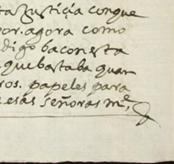 ta Justiçia conque
por. agora como
digo bacon esta
que bastaba quan
ros. papeles para
a esas señoras m^e